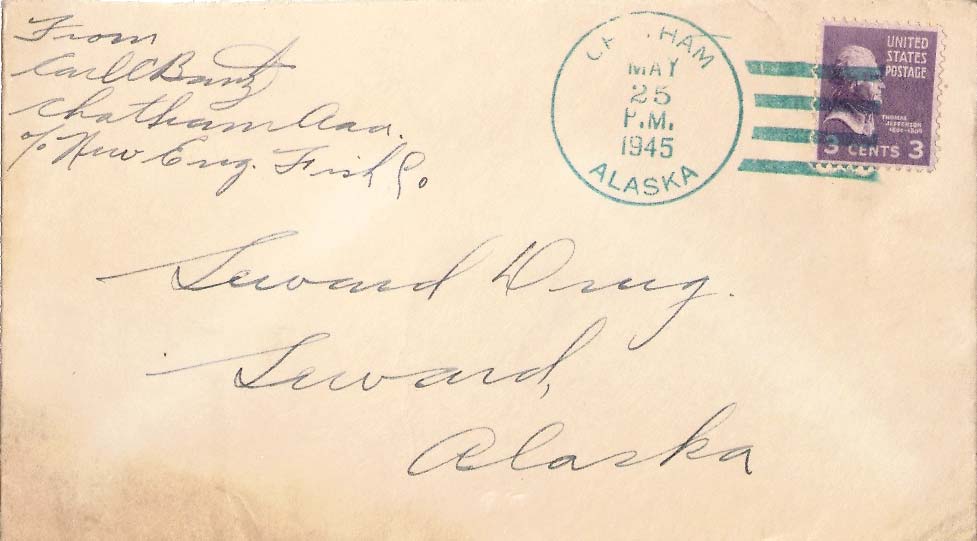 From
Carl C Bantz
Chatham Aaa.
c/o New Eng. Fish Co
CHATHAM
MAY
25
P.M.
1945
ALASKA
UNITED
STATES
POSTAGE
THOMAS
JEFFERSON
3 CENTS 3
Seward Drug.
Seward,
Alaska